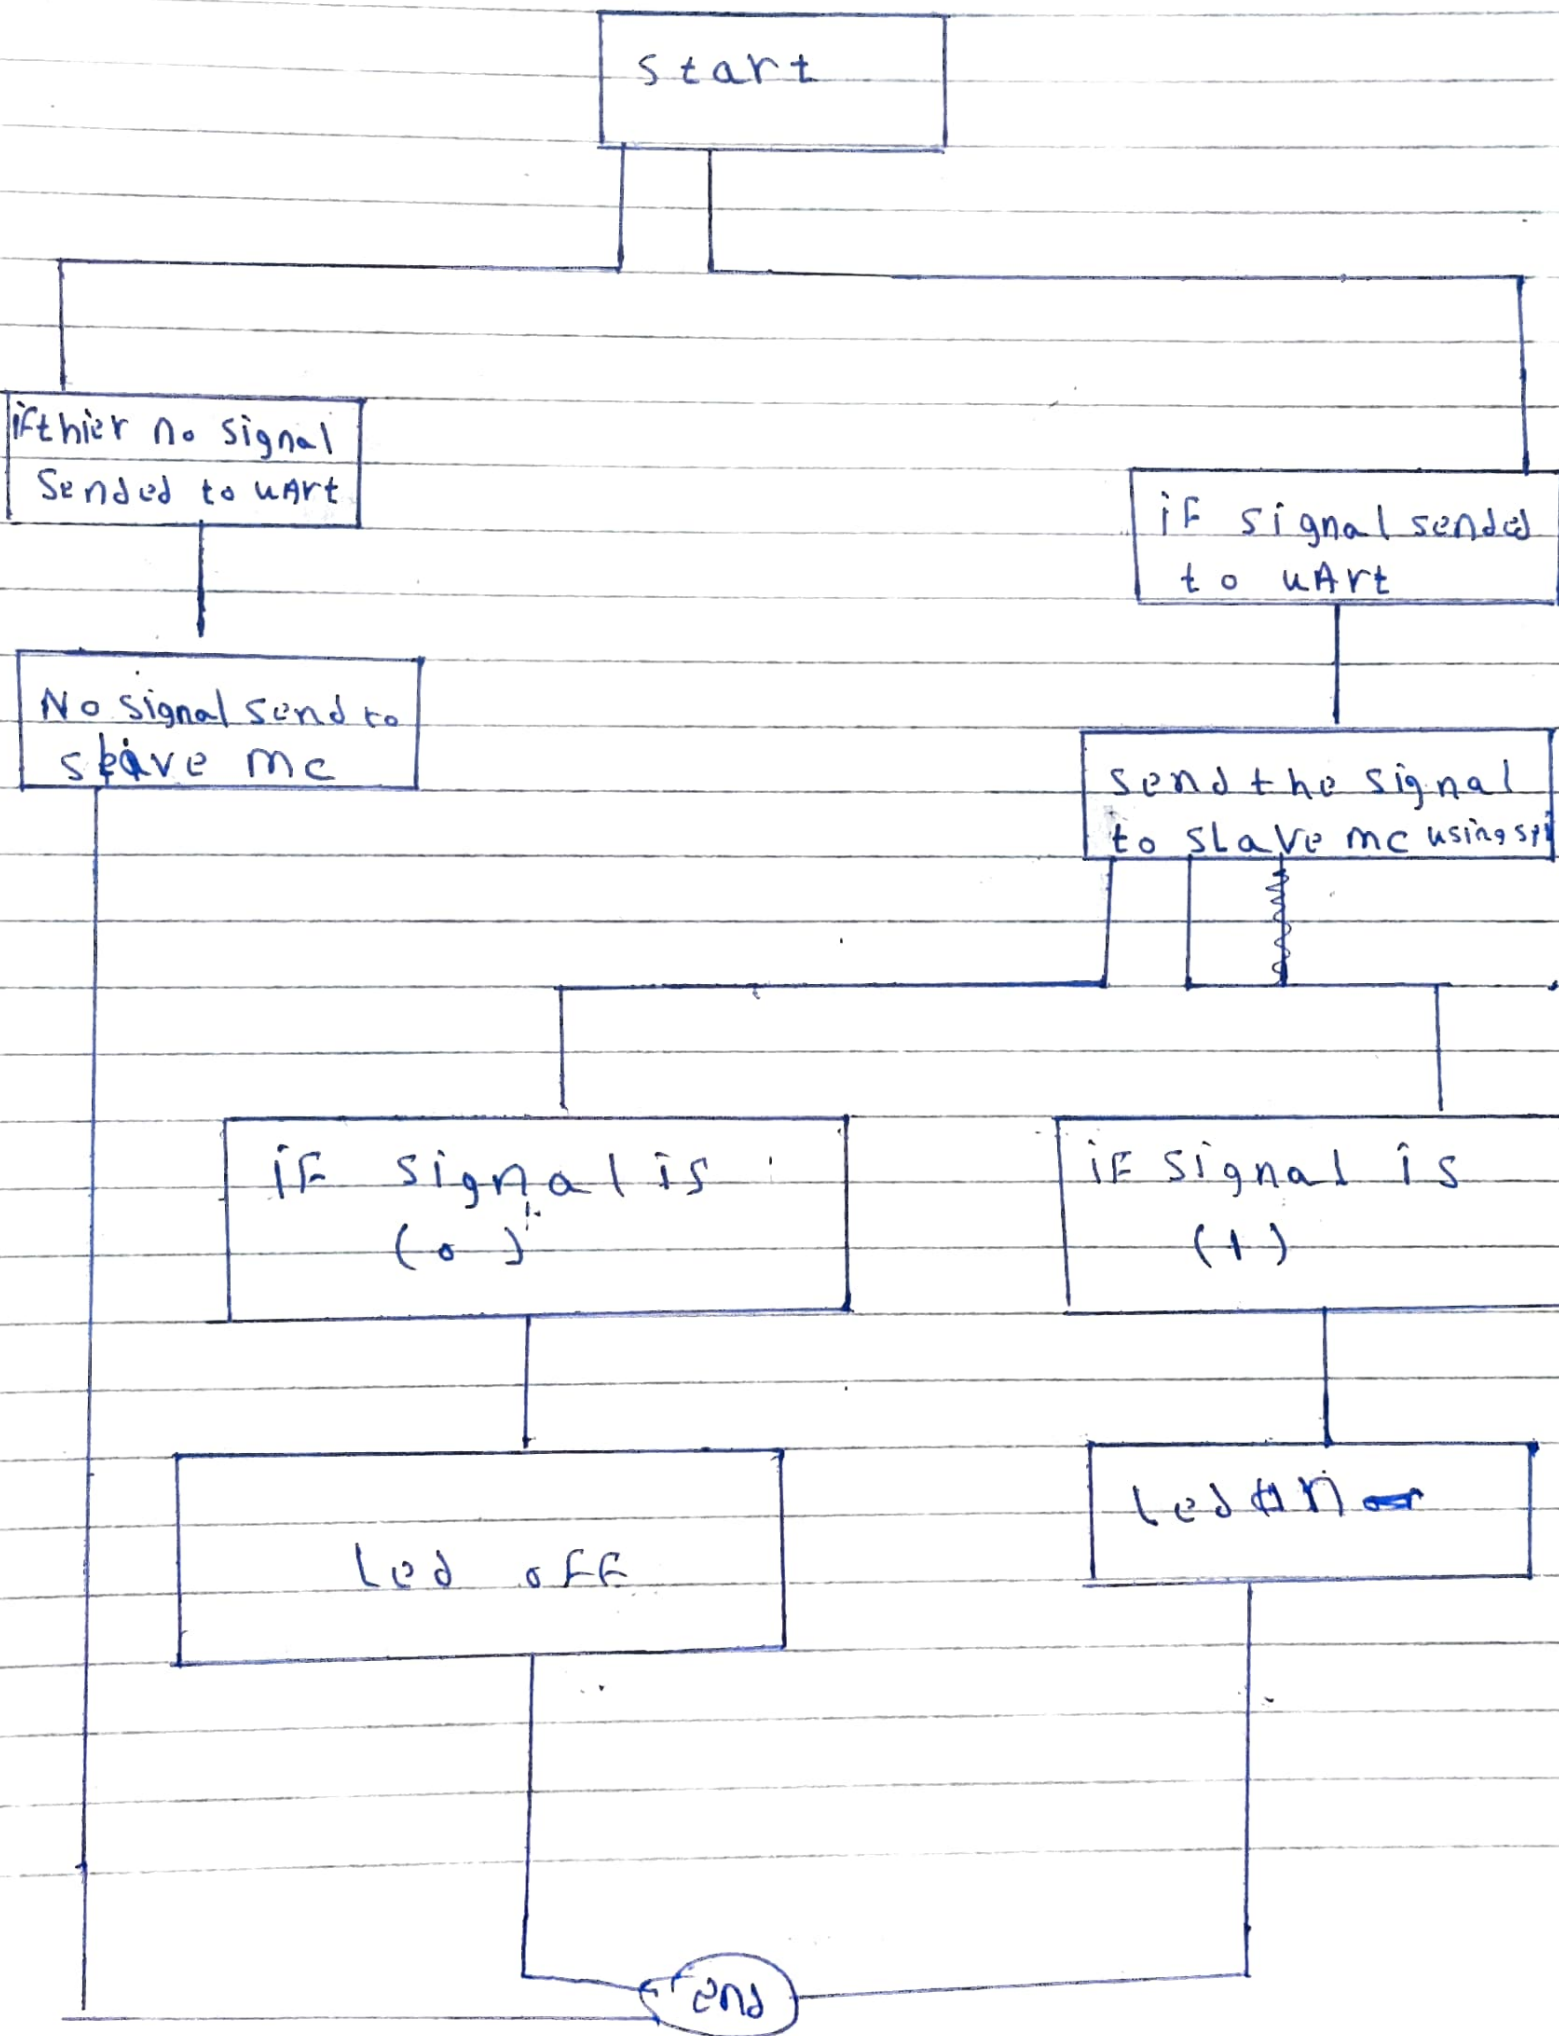 start
if thier no signal
Sended to uArt
if signal sended
to uArt
No signal send to
slave mc
send the signal
to slave mc using spi
if signal is
(0)
if signal is
(1)
led off
led on
end